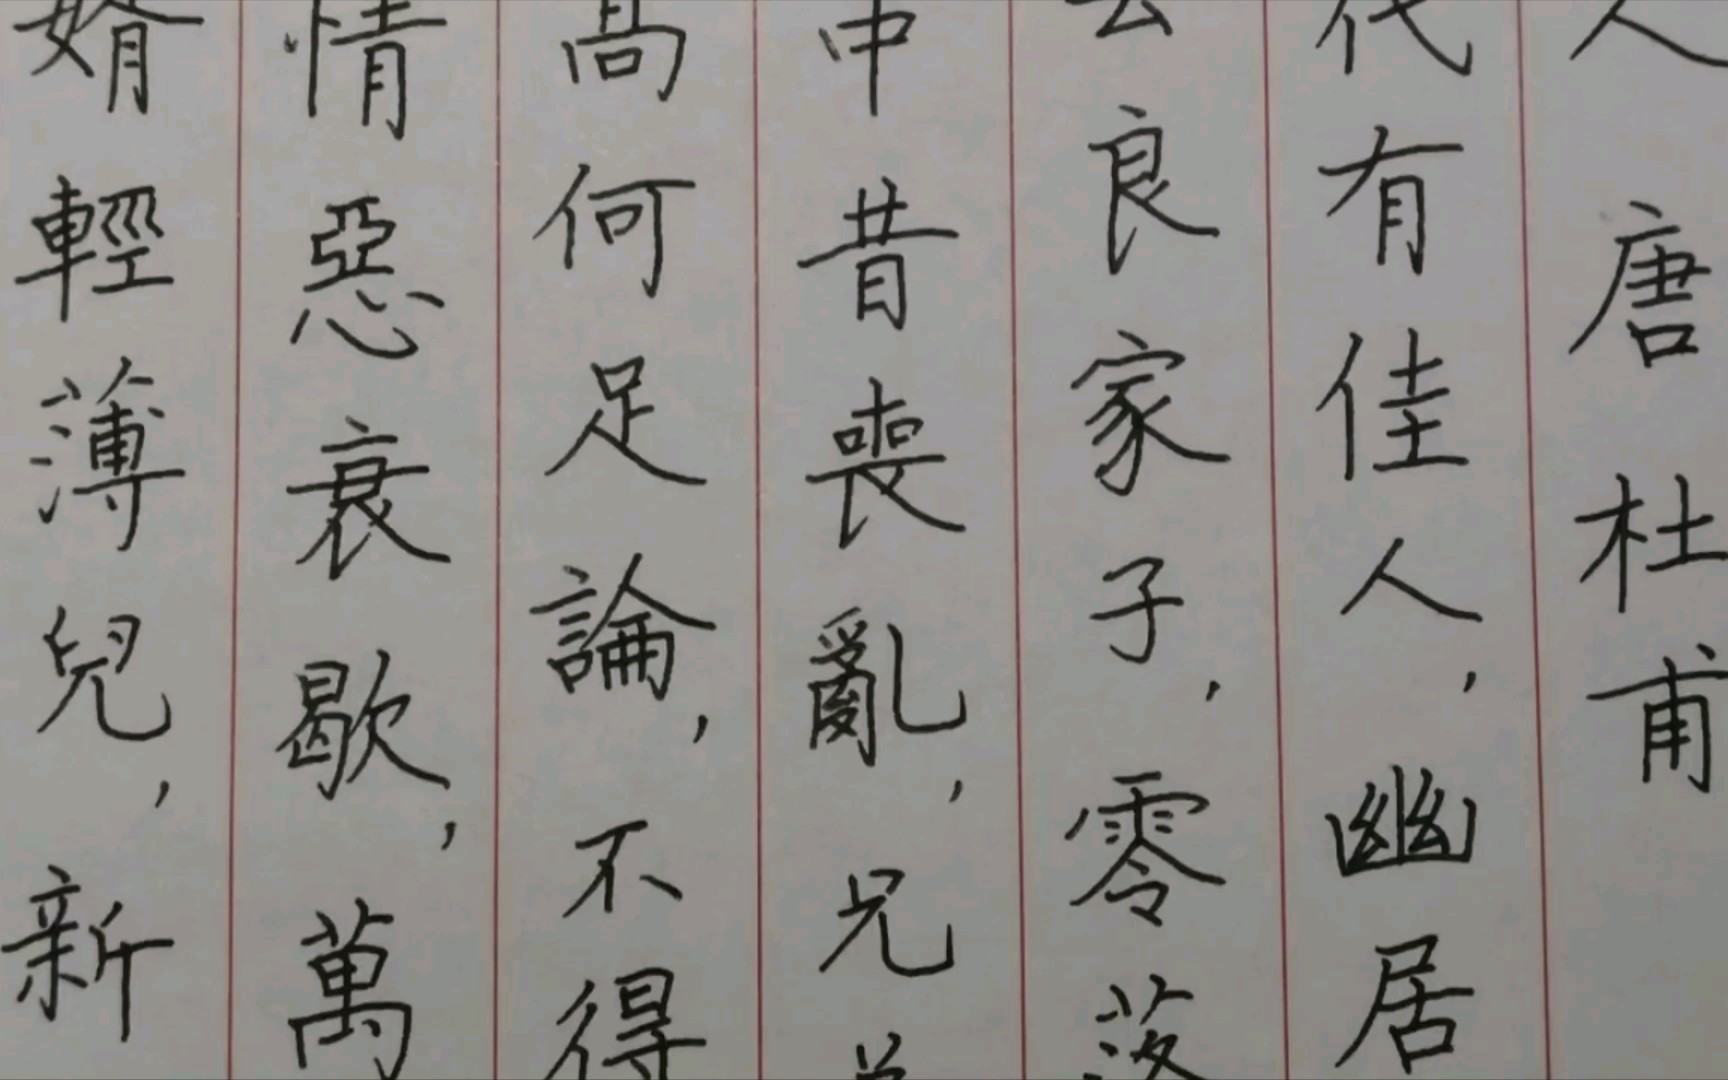 人唐杜甫
代有佳人，幽居
云良家子，零落
中昔喪亂，兄弟
高何足論，不得
情惡衰歇，萬
婿輕薄兒，新